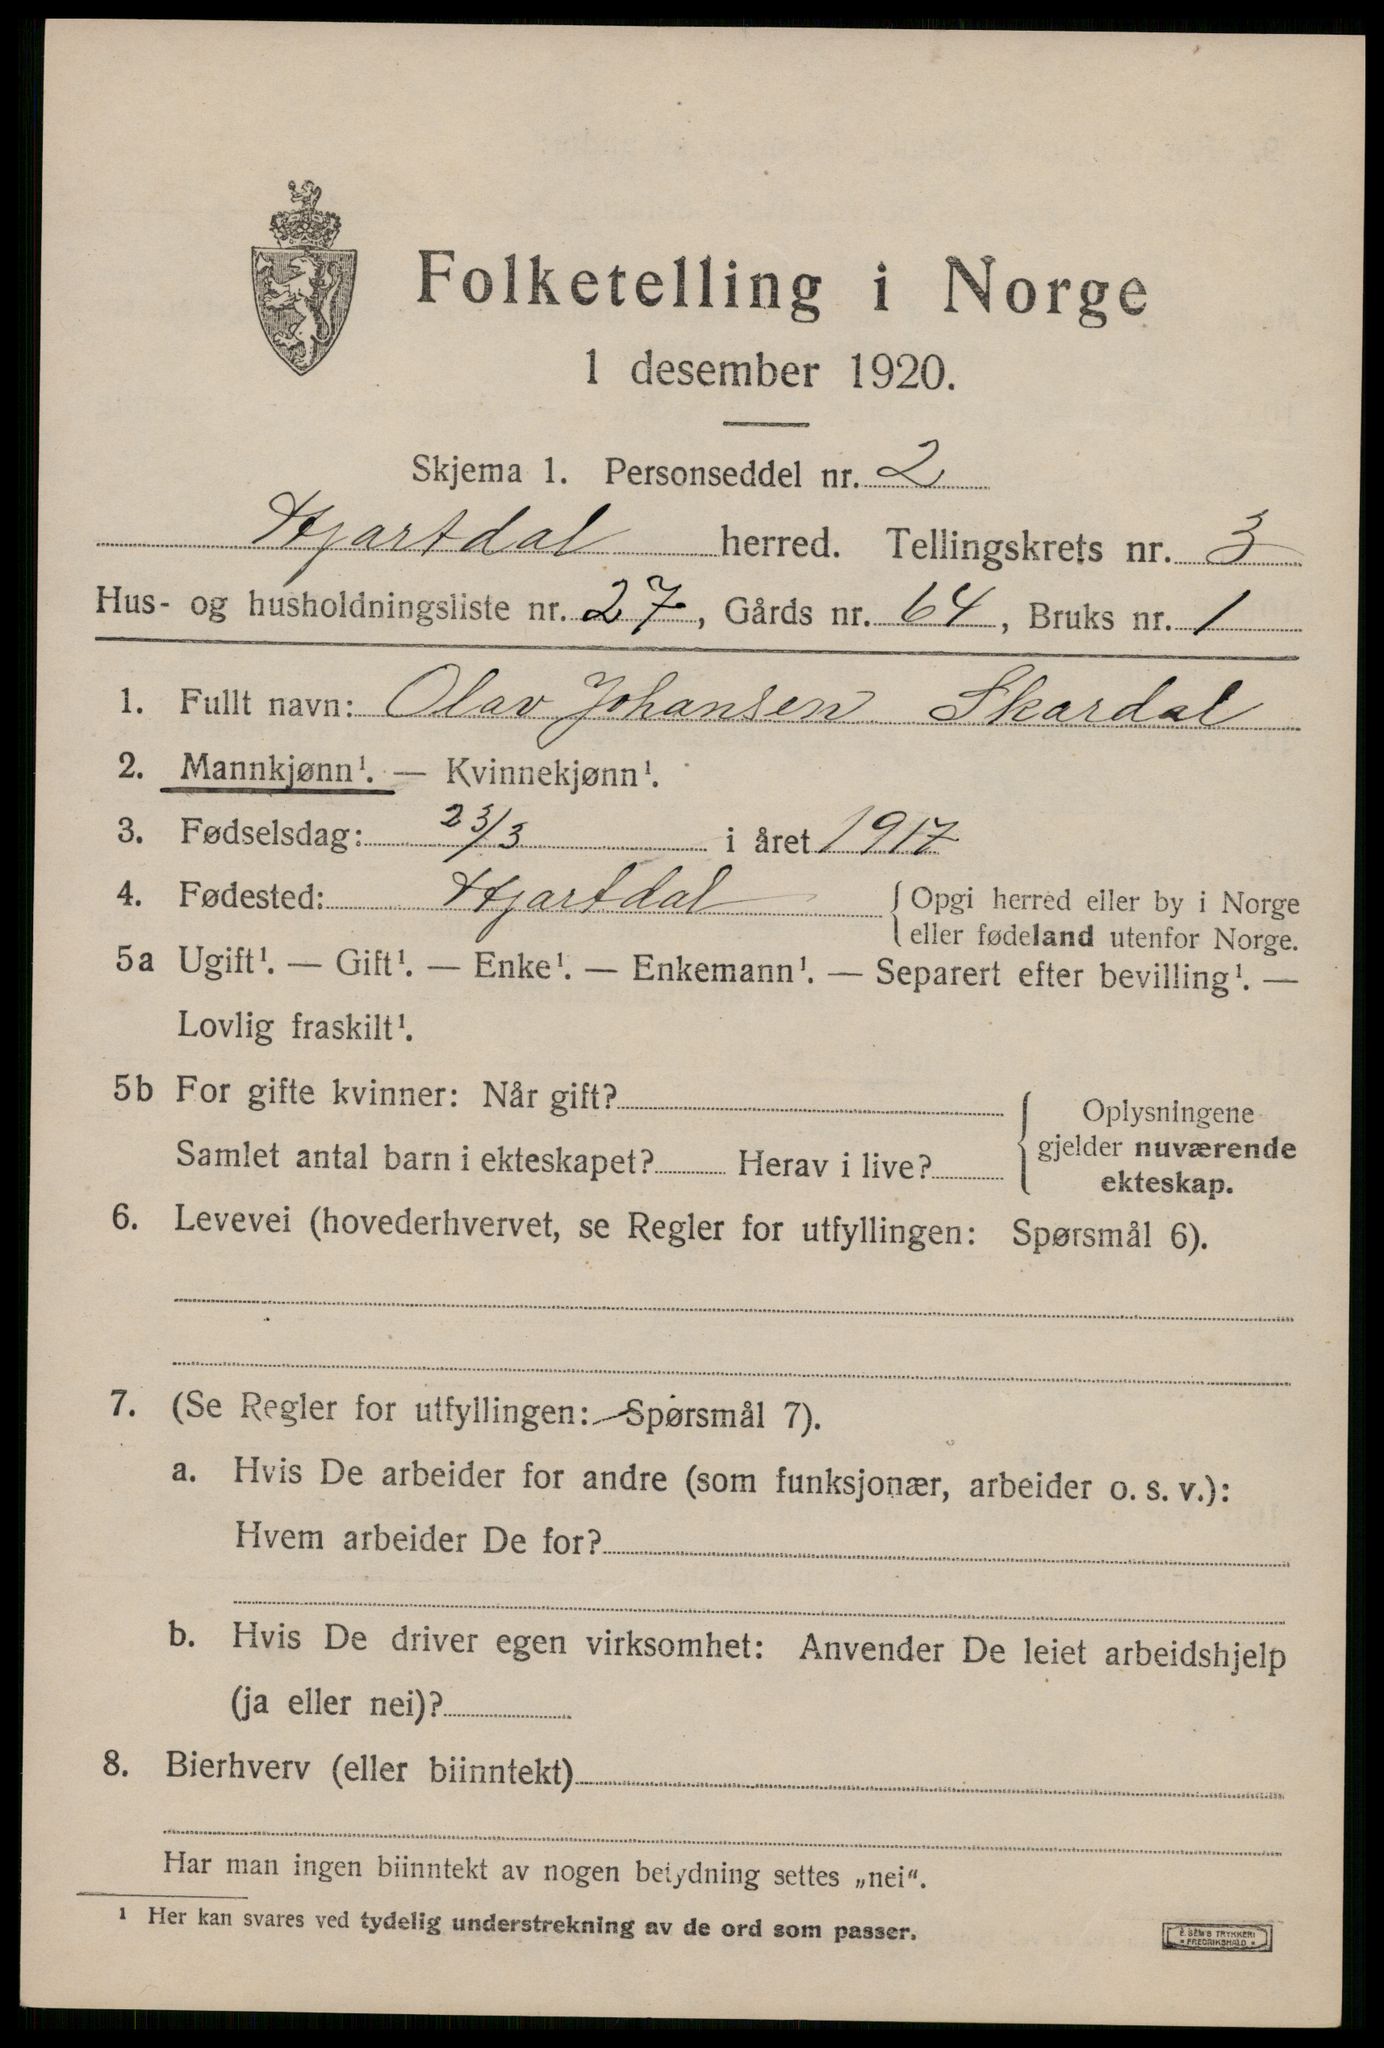 Folketelling i Norge
1 desember 1920.
Skjema 1. Personseddel nr. 2
Hjartdal herred. Tellingskrets nr. 3
Hus- og husholdningsliste nr. 27, Gårds nr. 64, Bruks nr. 1
1. Fullt navn: Olav Johansen Skardal
2. Mannkjønn¹. — Kvinnekjønn¹.
3. Fødselsdag: 23/3 i året 1917
4. Fødested: Hjartdal { Opgi herred eller by i Norge
eller fødeland utenfor Norge.
5a Ugift¹. — Gift¹. — Enke¹. — Enkemann¹. — Separert efter bevilling¹. —
Lovlig fraskilt¹.
5b For gifte kvinner: Når gift?
Samlet antal barn i ekteskapet? Herav i live?
Oplysningene
gjelder nuværende
ekteskap.
6. Levevei (hovederhvervet, se Regler for utfyllingen: Spørsmål 6).
7. (Se Regler for utfyllingen: Spørsmål 7).
a. Hvis De arbeider for andre (som funksjonær, arbeider o. s. v.):
Hvem arbeider De for?
b. Hvis De driver egen virksomhet: Anvender De leiet arbeidshjelp
(ja eller nei)?
8. Bierhverv (eller biinntekt)
Har man ingen biinntekt av nogen betydning settes „nei“.
¹ Her kan svares ved tydelig understrekning av de ord som passer.
E. SEM'S TRYKKERI
• FREDRIKSHALD •